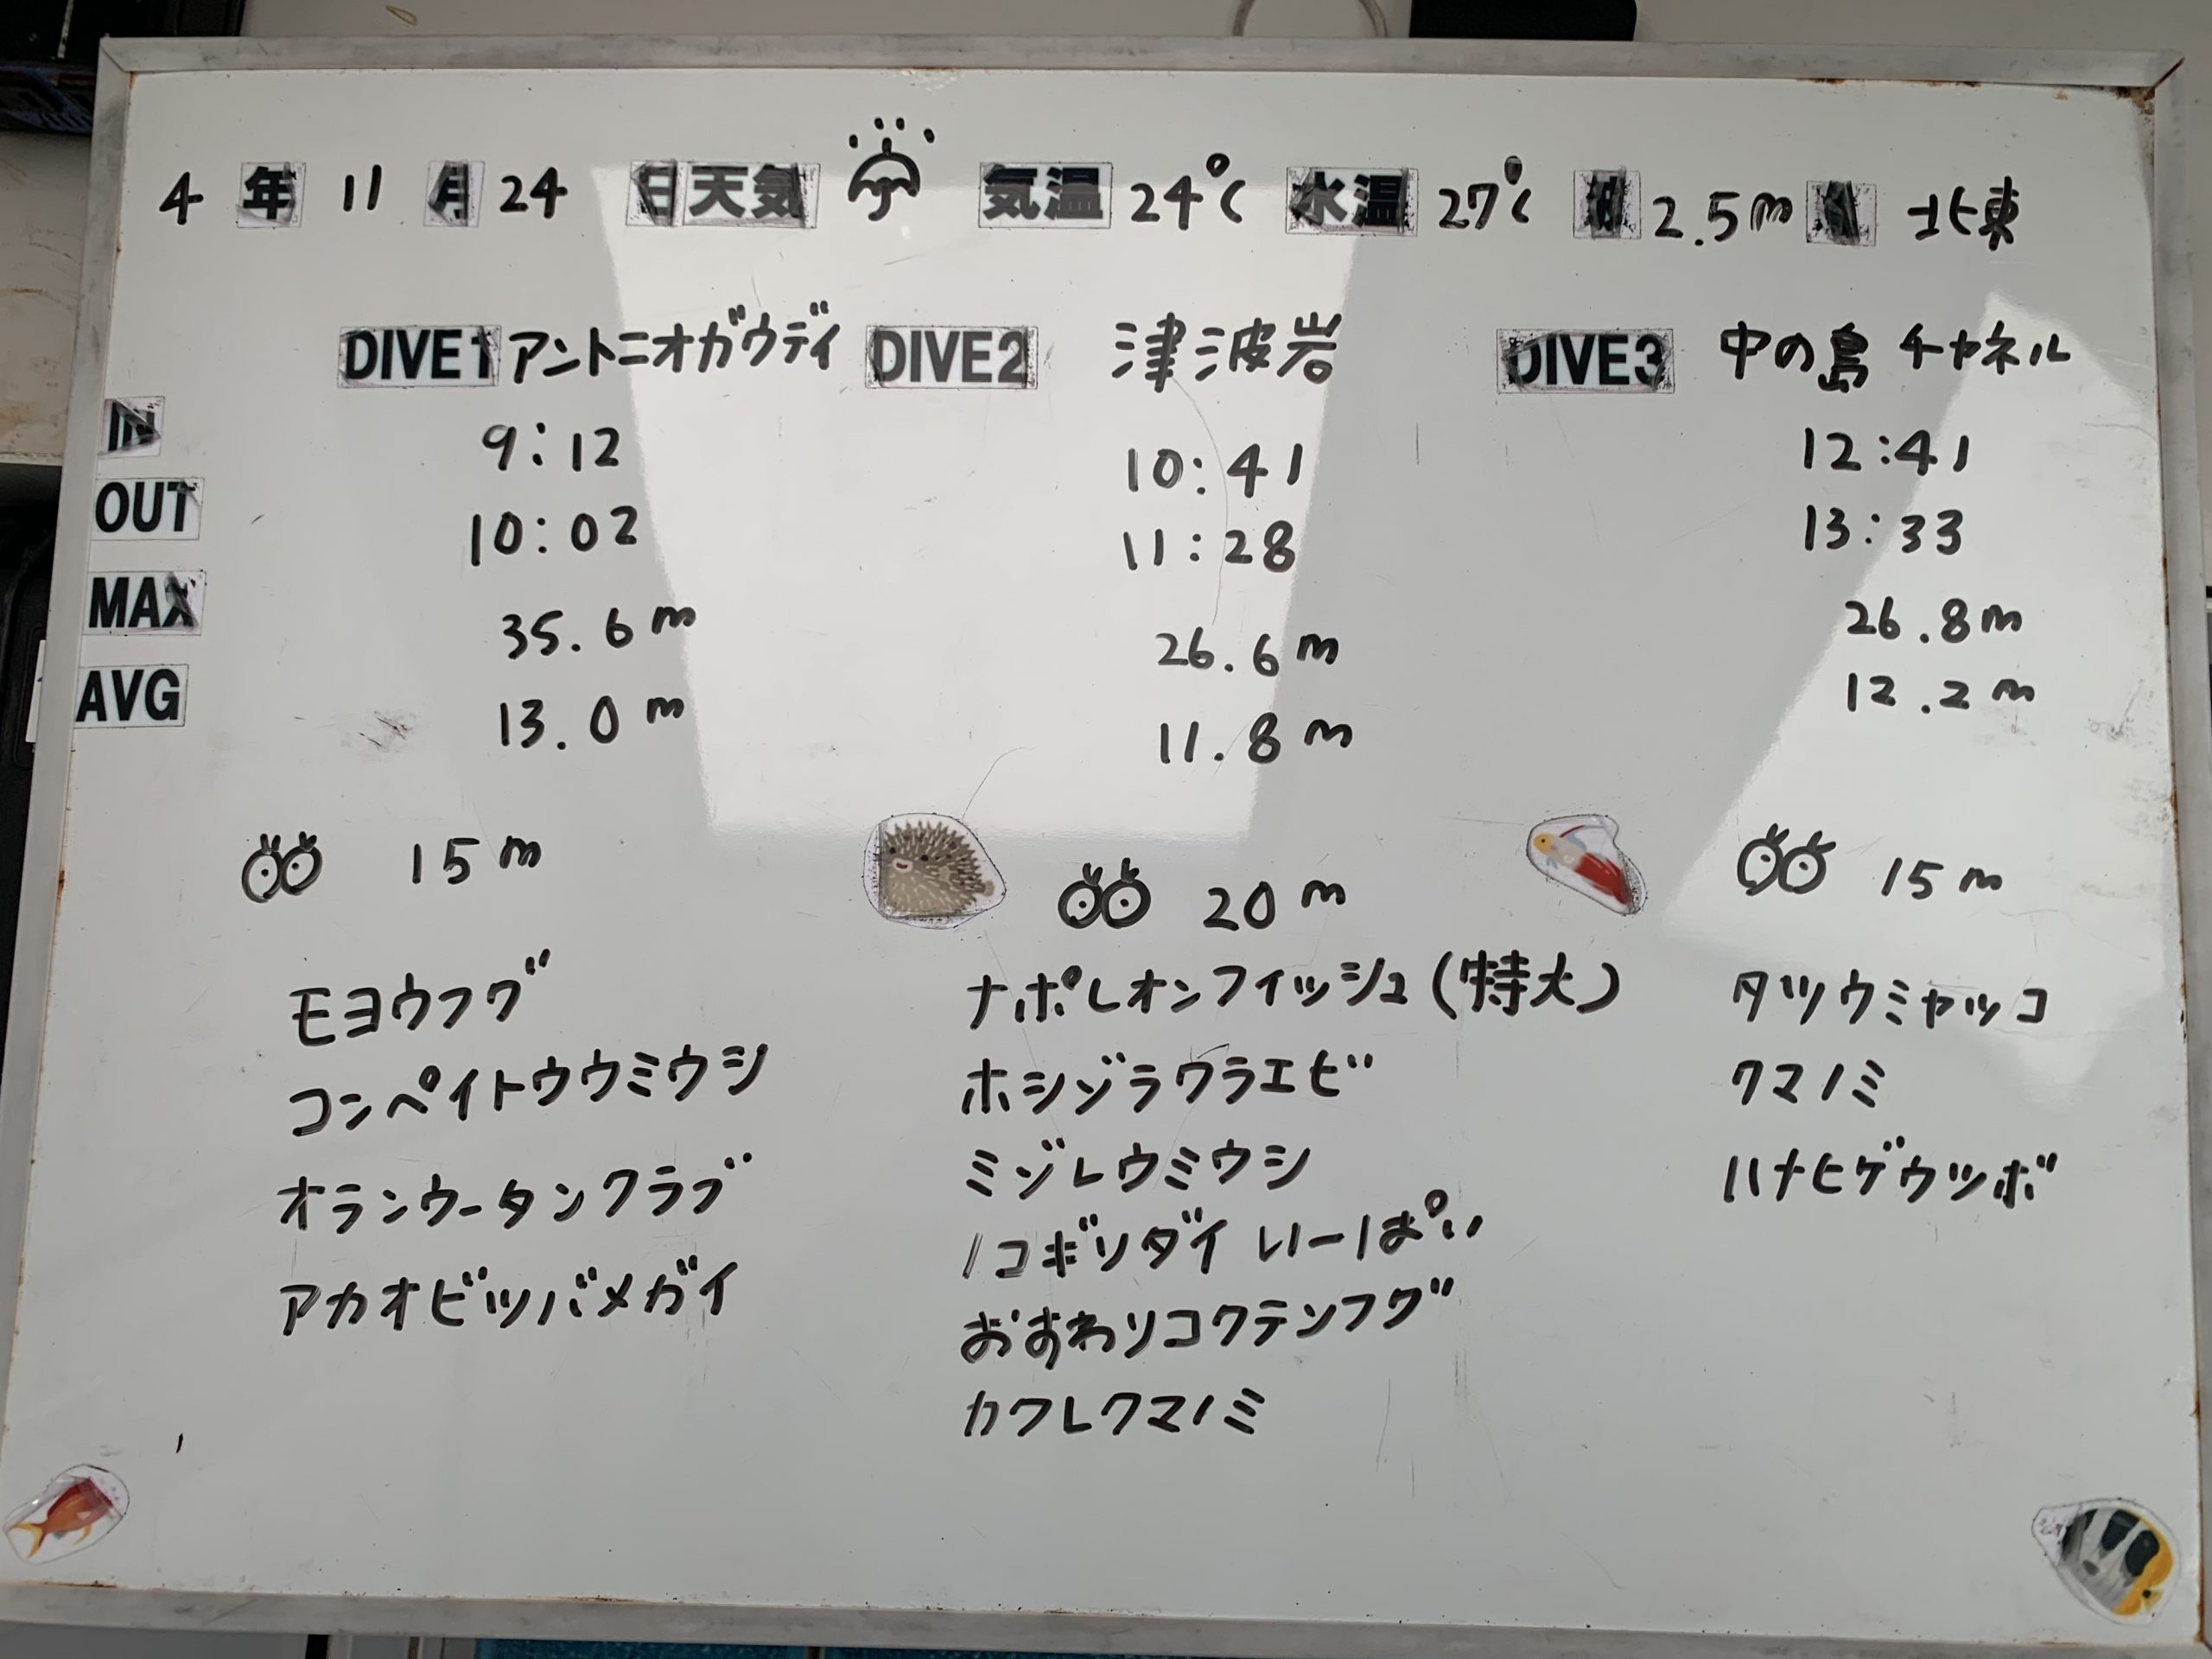 4 年 11 月 24 日 天気 気温 24℃ 水温 27℃ 2.5m 北東
DIVE1 アントニオガウディ DIVE2 津波岩 DIVE3 中の島 チャネル
IN 9:12 10:41 12:41
OUT 10:02 11:28 13:33
MAX 35.6m 26.6m 26.8m
AVG 13.0m 11.8m 12.2m
15m 20m 15m
モヨウフグ
コンペイトウウミウシ
オランウータンクラブ
アカオビツバメガイ
ナポレオンフィッシュ(特大)
ホシゾラワラエビ
ミゾレウミウシ
ノコギリダイ いーぱい
おすわりコクテンフグ
カクレクマノミ
タツウミヤッコ
クマノミ
ハナヒゲウツボ